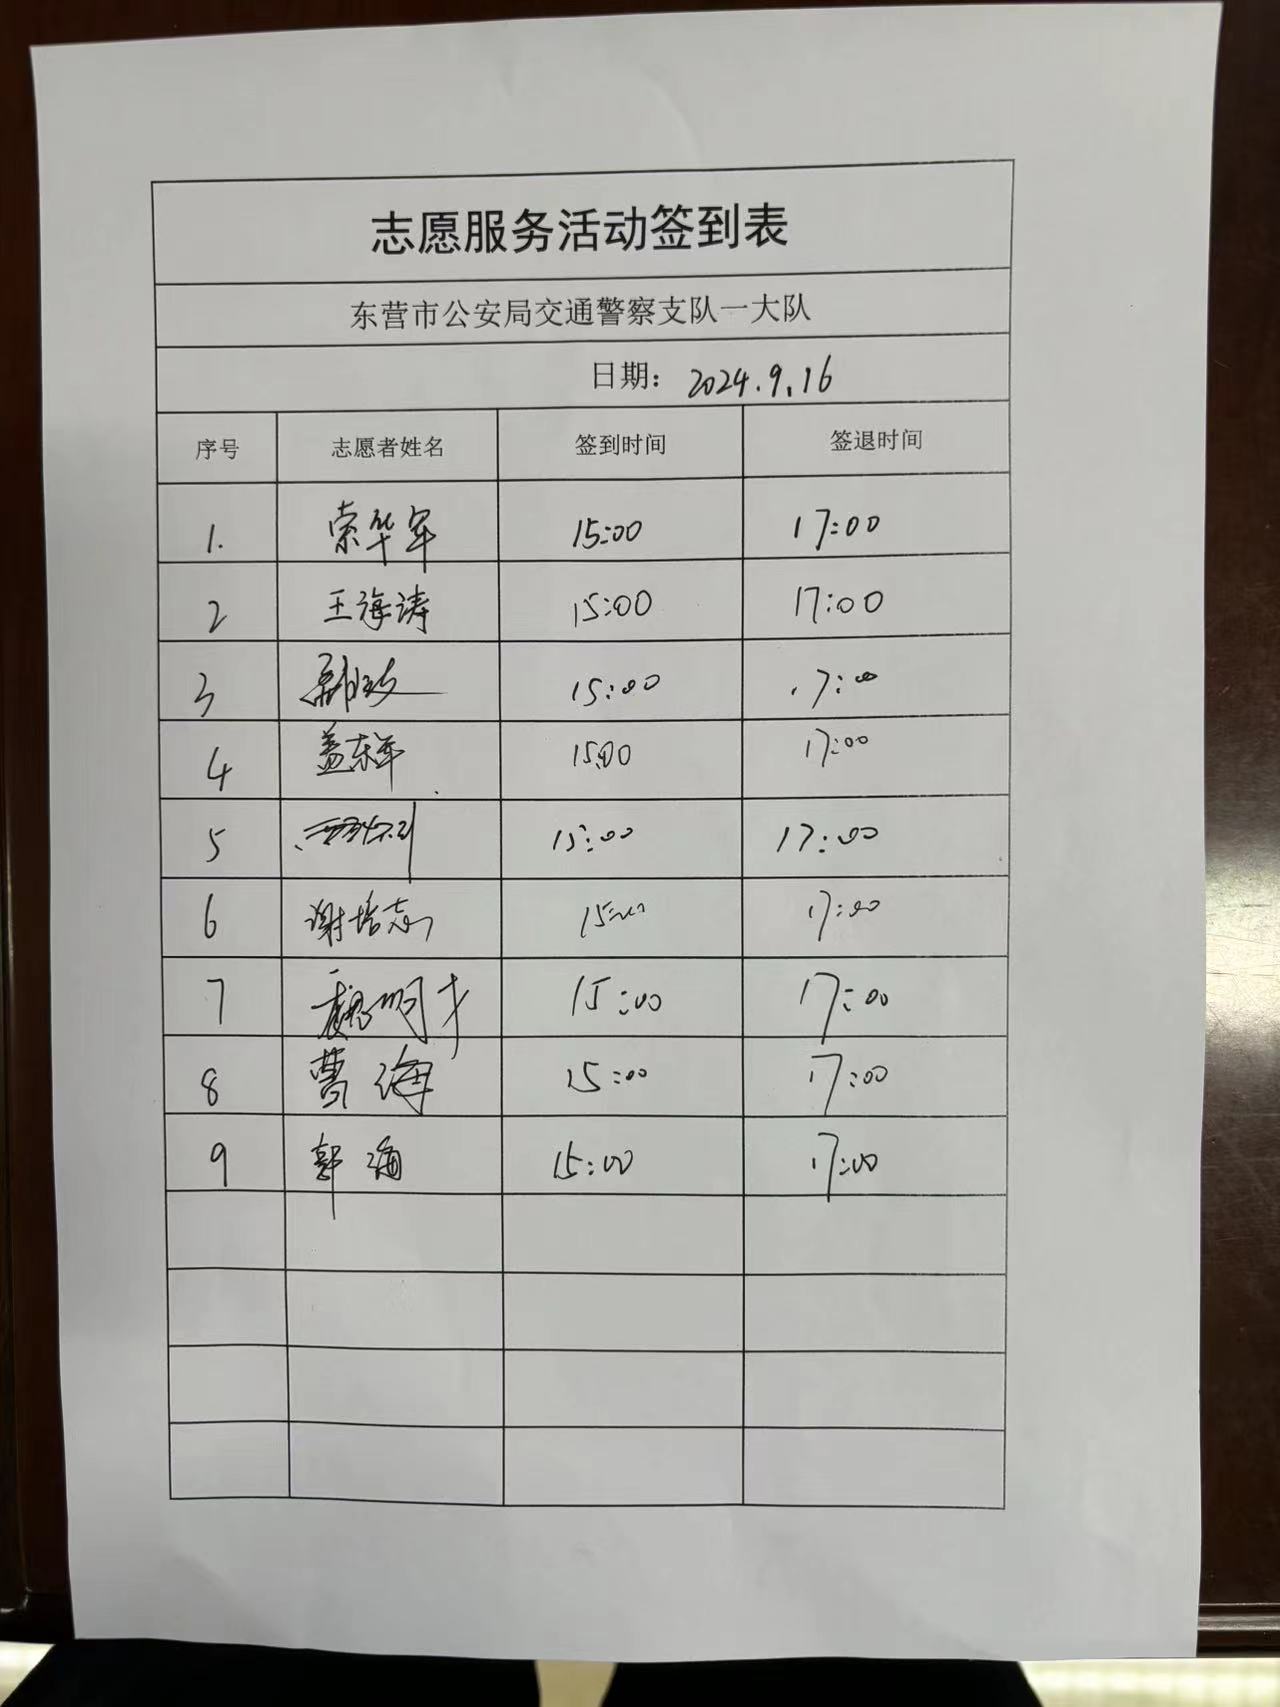 志愿服务活动签到表
东营市公安局交通警察支队一大队
日期：2024.9.16
序号 志愿者姓名 签到时间 签退时间
1. 索华军 15:00 17:00
2 王海涛 15:00 17:00
3 15:00 17:00
4 盖东军 15:00 17:00
5 15:00 17:00
6 谢培志 15:00 17:00
7 魏明才 15:00 17:00
8 曹海 15:00 17:00
9 郭海 15:00 17:00